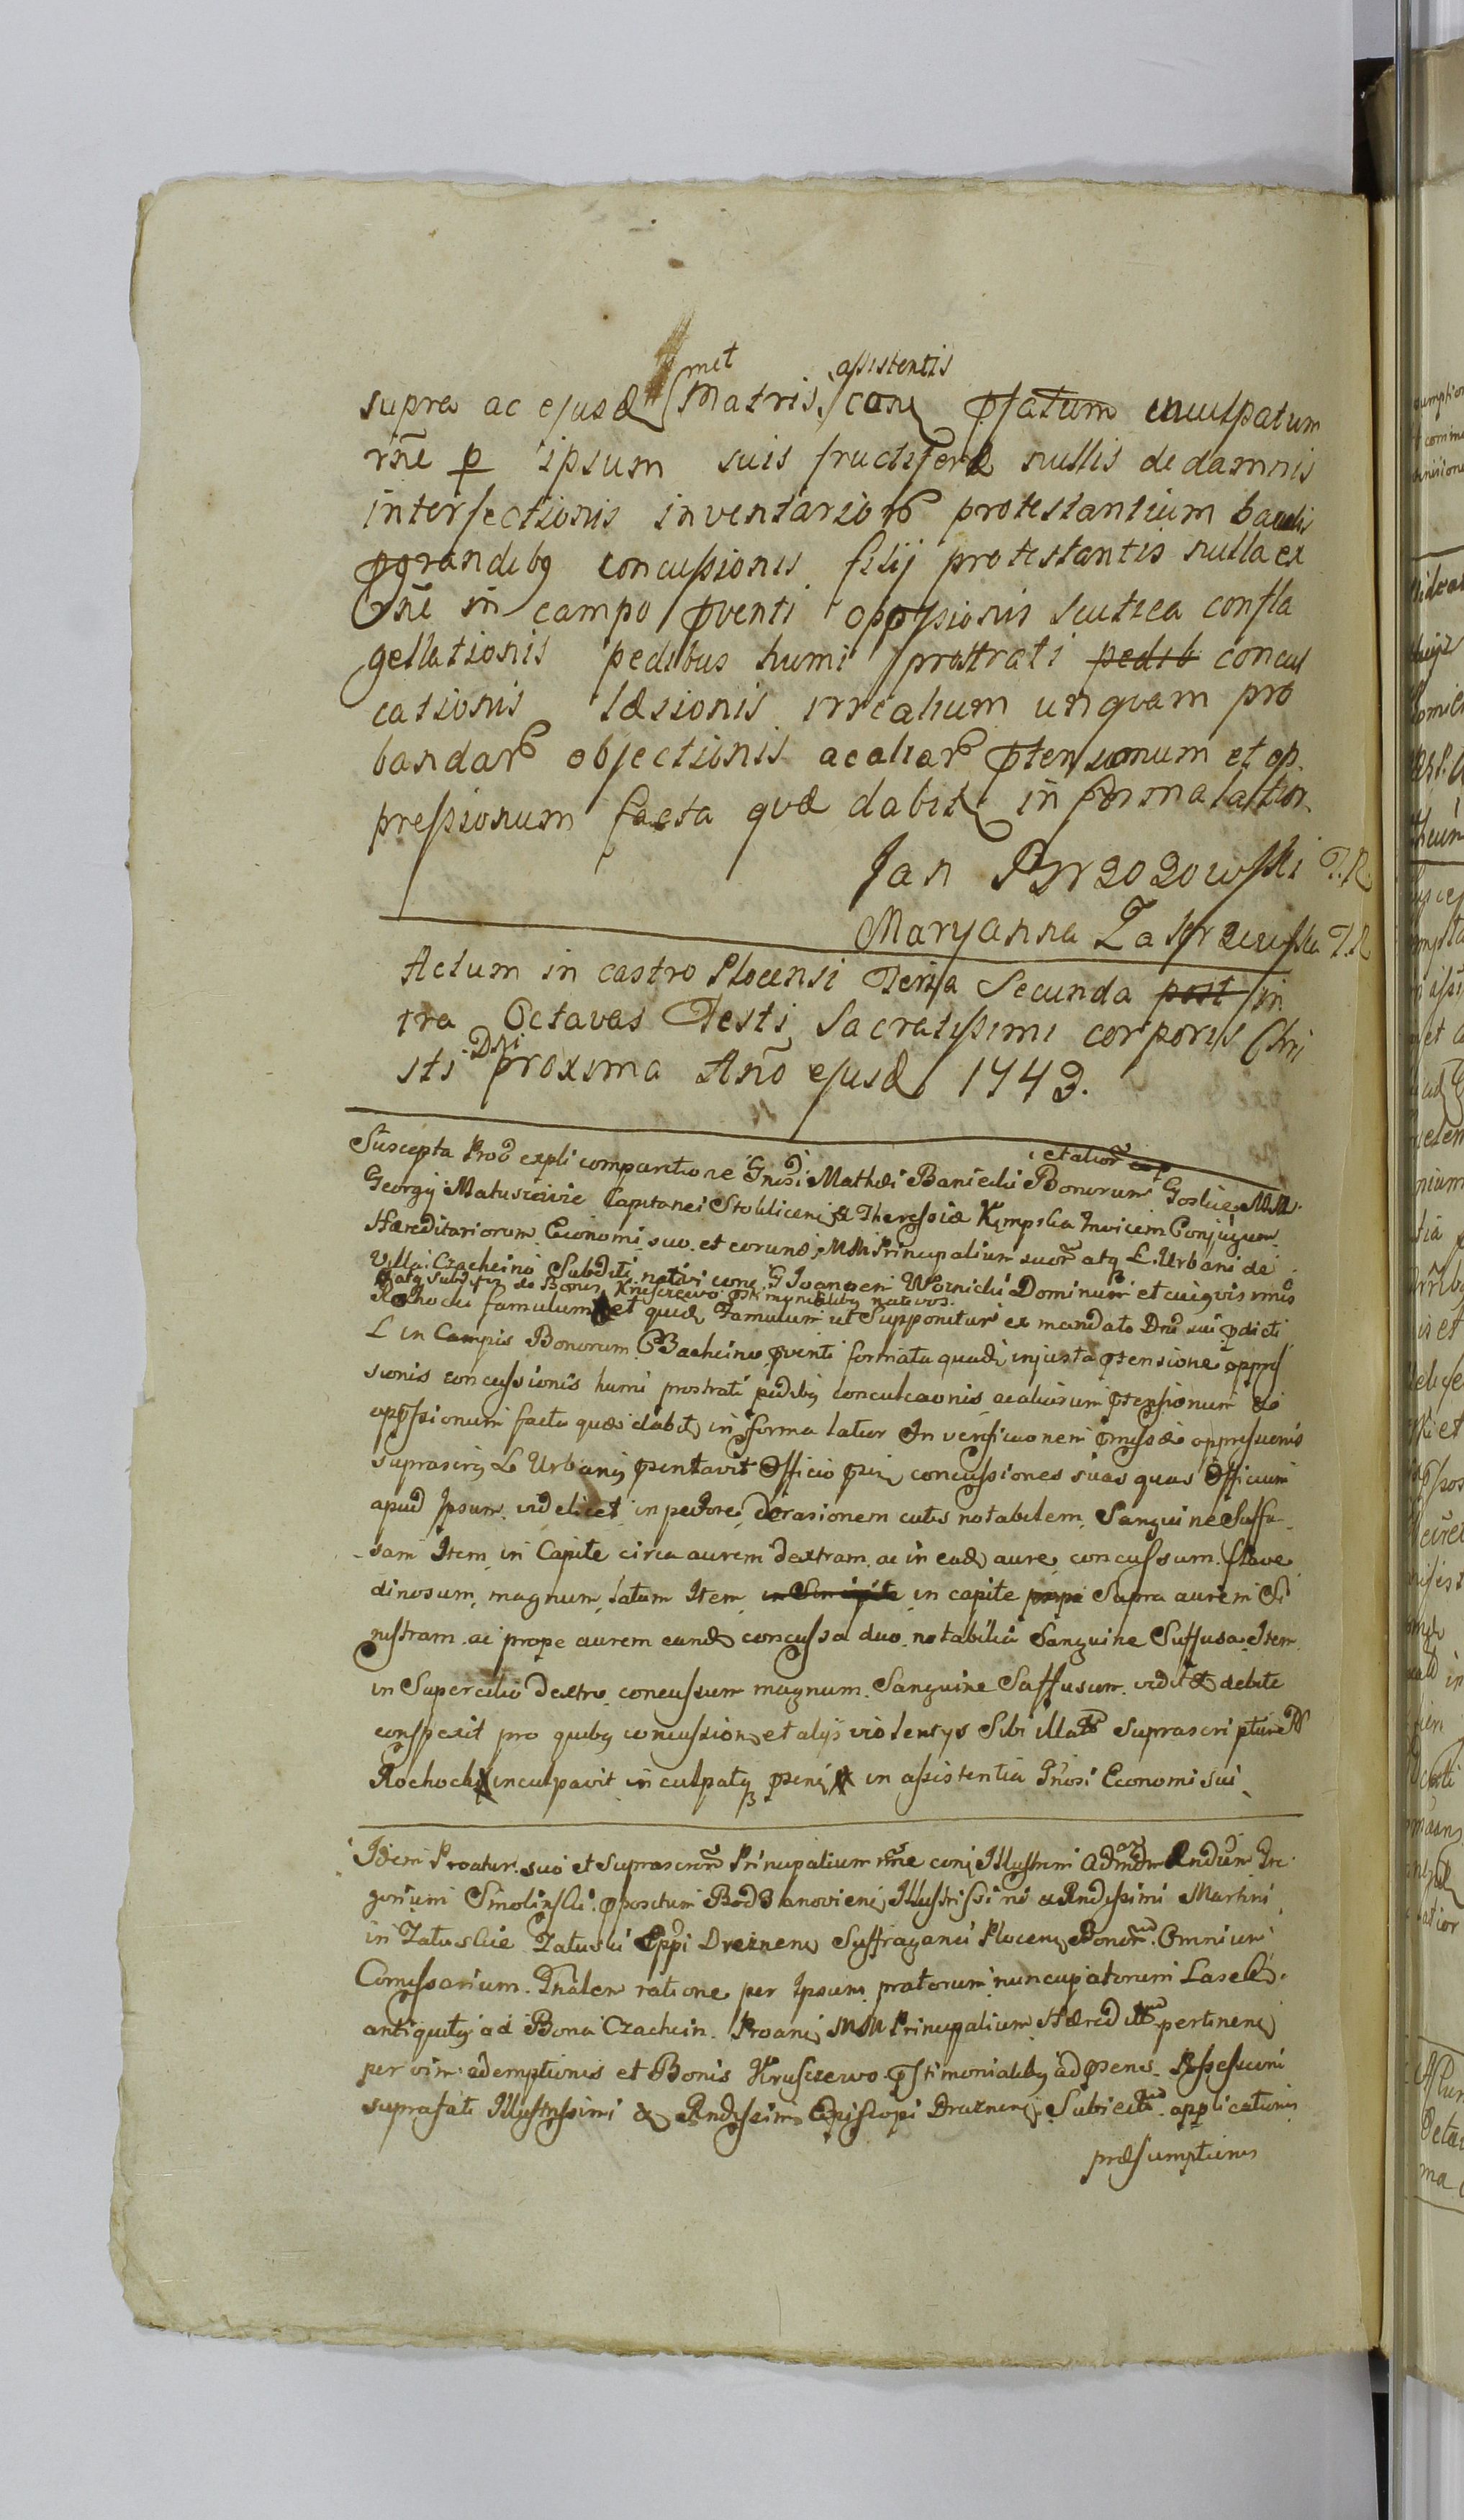 met assistentis
supra ac ejusd Matris cone pfatum inculpatum
rñe p ipsum suis fructifera nullis de damnis
interfectionis inventarior protestantium baculis
pgrandibq concussionis filij protestantis nulla ex
rñe in campo pventi oppssionis scutica confla
gellationis pedibus humi prostrati pedib concul
cationis læsionis irrealium unquam pro
bandar objectionis ac aliar ptensionum et op
pressionum facta quæ dabit in forma latior
Jan Brzozowski T.R.
Maryanna Zakrzewska T.R
Actum in castro Plocensi Feria Secunda post in
tra Octavas Festi Sacratissimi corporis Chri
sti Dñi proxima Año ejusd 1743.
Suscepta Prod expli comparitione Gnosi Mathæi Baniecki Bonorum et alior Goslice MM
Georgij Matuszewic Capitanei Stokliceni & Theressiæ Kempska Invicem Conjugum
Hæreditariorum Economi suo et eorund MM Principalium suor atq L. Urbani de
Villa Czacheino Subditi nativi cone G Joannem Woznicki Dominum et cuiqvis
atq de Bonis Krusczewo nativos
Rochocki famulum et quid Famulum ut Supponitur ex mandato Dni sui pdicti
L in Campis Bonorum Czacheino pventi formata quadi injusta ptensione oppres
sionis concussionis humi prostrati pedibq conculcaonis ac aliarum ptensionum &
oppssionum facta quæ dabit in forma latior In verificaonem pmissæ oppressionis
suprascrip L Urbanq psentavit Officio psen concussiones suas quas Officium
apud Ipsum videlicet in pectore derasionem cutis notabilem Sanguine Suffu
sam Item in Capite circa aurem dextram ac in ead aure concussum flave
dinosum, magnum, latum Item in Sincipite in capite prope Supra aurem Si
nistram ac prope aurem eand concussa duo notabilia Sanguine Suffusa Item
in Supercilio dextro concussum magnum Sanguine Suffusum vidit & debite
conspexit pro quibq concussion et alijs violentijs Sibi illat suprascriptum
Rochocki inculpavit inculpatq pseni in assistentia Gnosi Economi sui
Idem Proatur suo et suprascrior Principalium rñe cone Illustrem Admdm Rndum Gre
gorium Smolinski ppositum Bodzanovien Illustrissimi & Rndissimi Martini
in Zaluskie Zaluski Eppi Drezneni Suffraganei Plocens Bonor Omnium
Comissarium Thalem ratione per Ipsum pratorum nuncupatorum Laseki
antiquitq ad Bona Czachein Proani MM Principalium Hæredit pertinen
per vim ademptionis et Bonis Krusczewo pstimonialibq ad psens Possessioni
suprafati Illustrissimi & Rndissimi Episcopi Drezneni Subject applicationis
præsumptionis